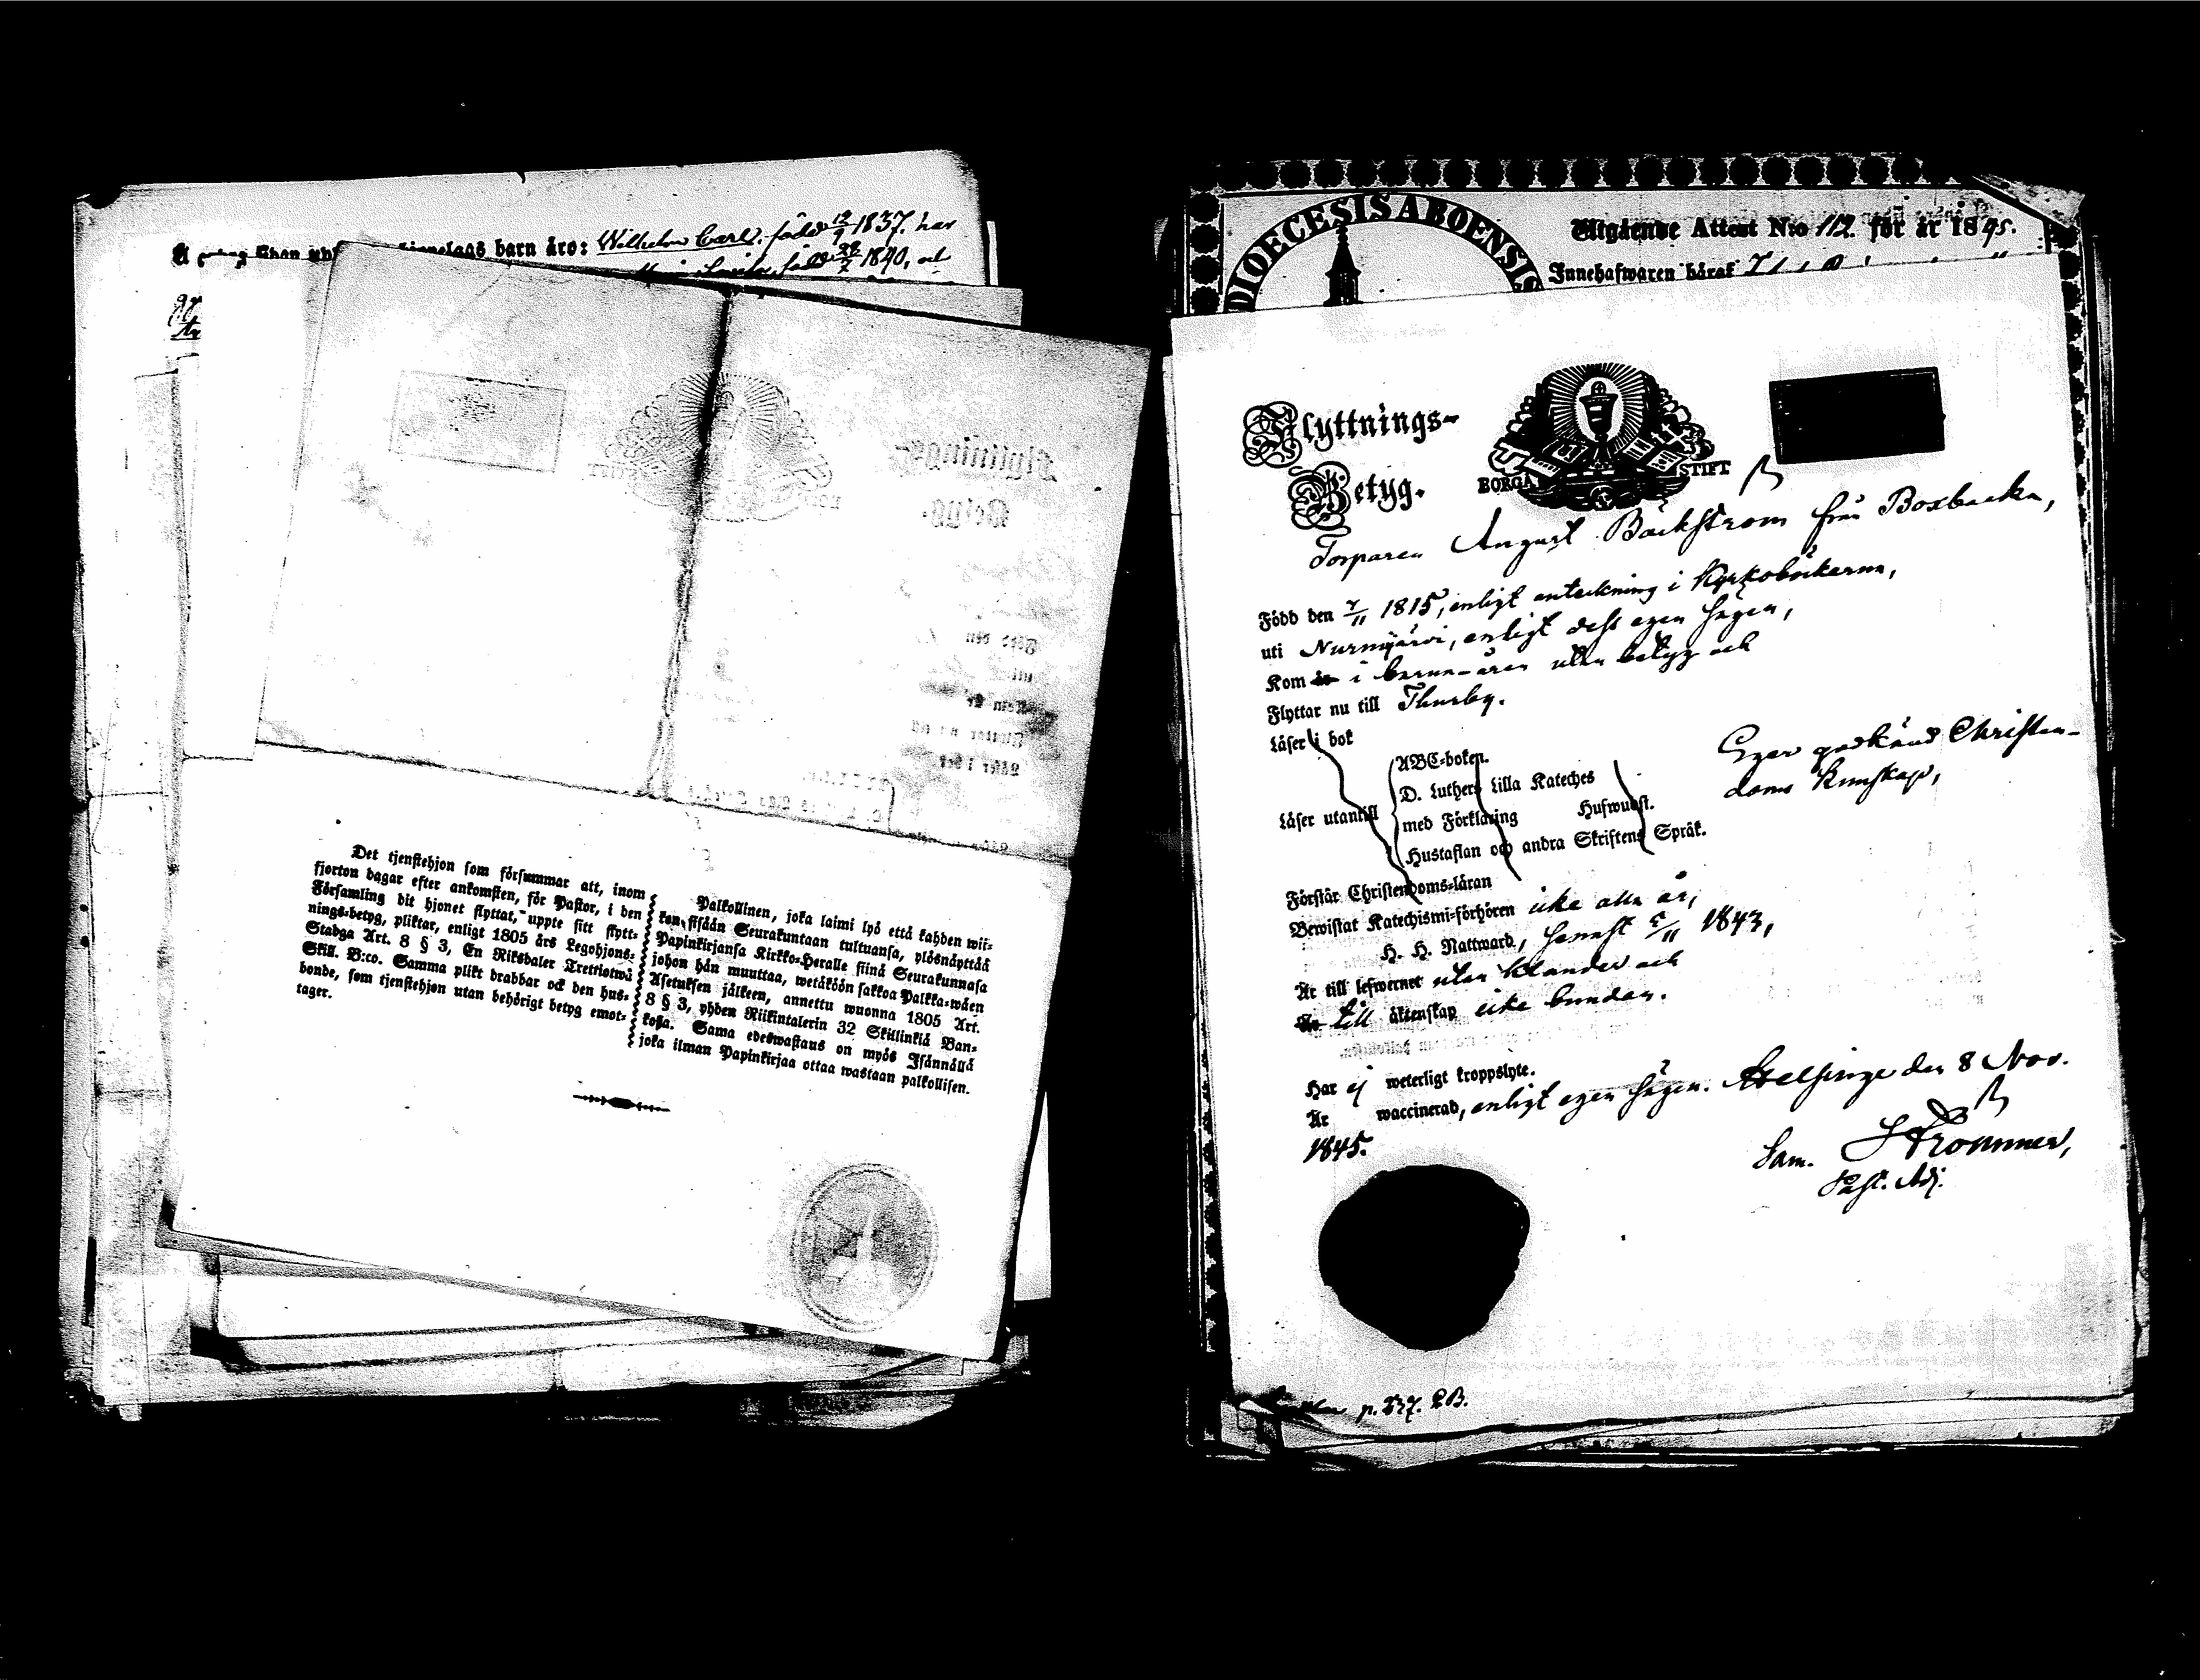 barn äro: Wilhelm Carl. född 19/9 1837. har
född 28/7 1840, och
Det tjenstehjon som försummar att, inom
fjorton dagar efter ankomsten, för Pastor, i den
Församling dit hjonet flyttat, uppte sitt flytt-
nings-betyg, pliktar, enligt 1805 års Legohjons-
Stadga Art. 8 § 3, En Riksdaler Trettiotwå
Skill. B:co. Samma plikt drabbar ock den hus-
bonde, som tjenstehjon utan behörigt betyg emot-
tager.
Palkollinen, joka laimi lyö että kahden wii-
kon sisään Seurakuntaan tultuansa, ylösnäyttää
Papinkirjansa Kirkko-Heralle siinä Seurakunnasa
johon hän muuttaa, wetäköön sakkoa Palkka-wäen
Asetuksen jälkeen, annettu wuonna 1805 Art.
8 § 3, yhden Riikintalerin 32 Skillinkiä Ban-
kosa. Sama edeswastaus on myös Isännällä
joka ilman Papinkirjaa ottaa wastaan palkollisen.
DIOECESIS ABOENSIS
Utgående Attest N:o 112 för år 1845.
Innehafwaren häraf
Flyttnings-
Betyg.
BORGÅ STIFT
Torparen August Bäckström från Boxbacka,
Född den 7/11 1815, enligt anteckning i Kyrkoböckerna,
uti Nurmijärvi, enligt dess egen sägen,
Kom år i barna-åren utan betyg och
Flyttar nu till Thusby.
Läser i bok
Eger godkänd Christen-
doms kunskap,
Läser utantill
ABC-boken.
D. Luthers Lilla Kateches
med Förklaring Hufwudst.
Hustaflan och andra Skriftens Språk.
Förstår Christendoms-läran
Bewistat Katechismi-förhören icke alla år,
H. H. Nattward, senast 5/11 1843,
Är till lefwernet utan klander och
Är till äktenskap icke bunden.
Har ej weterligt kroppslyte.
Är waccinerad, enligt egen sägen. Helsinge den 8 Nov.
1845.
Sam. Strömmer,
Past. Adj.